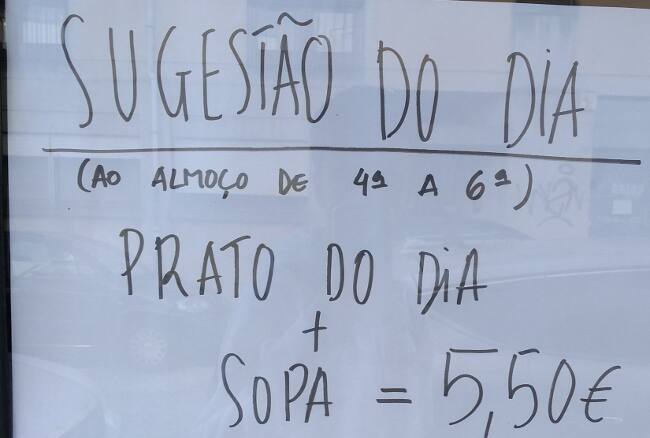 SUGESTÃO DO DIA
(AO ALMOÇO DE 4ª A 6ª)
PRATO DO DIA
+
SOPA = 5,50€